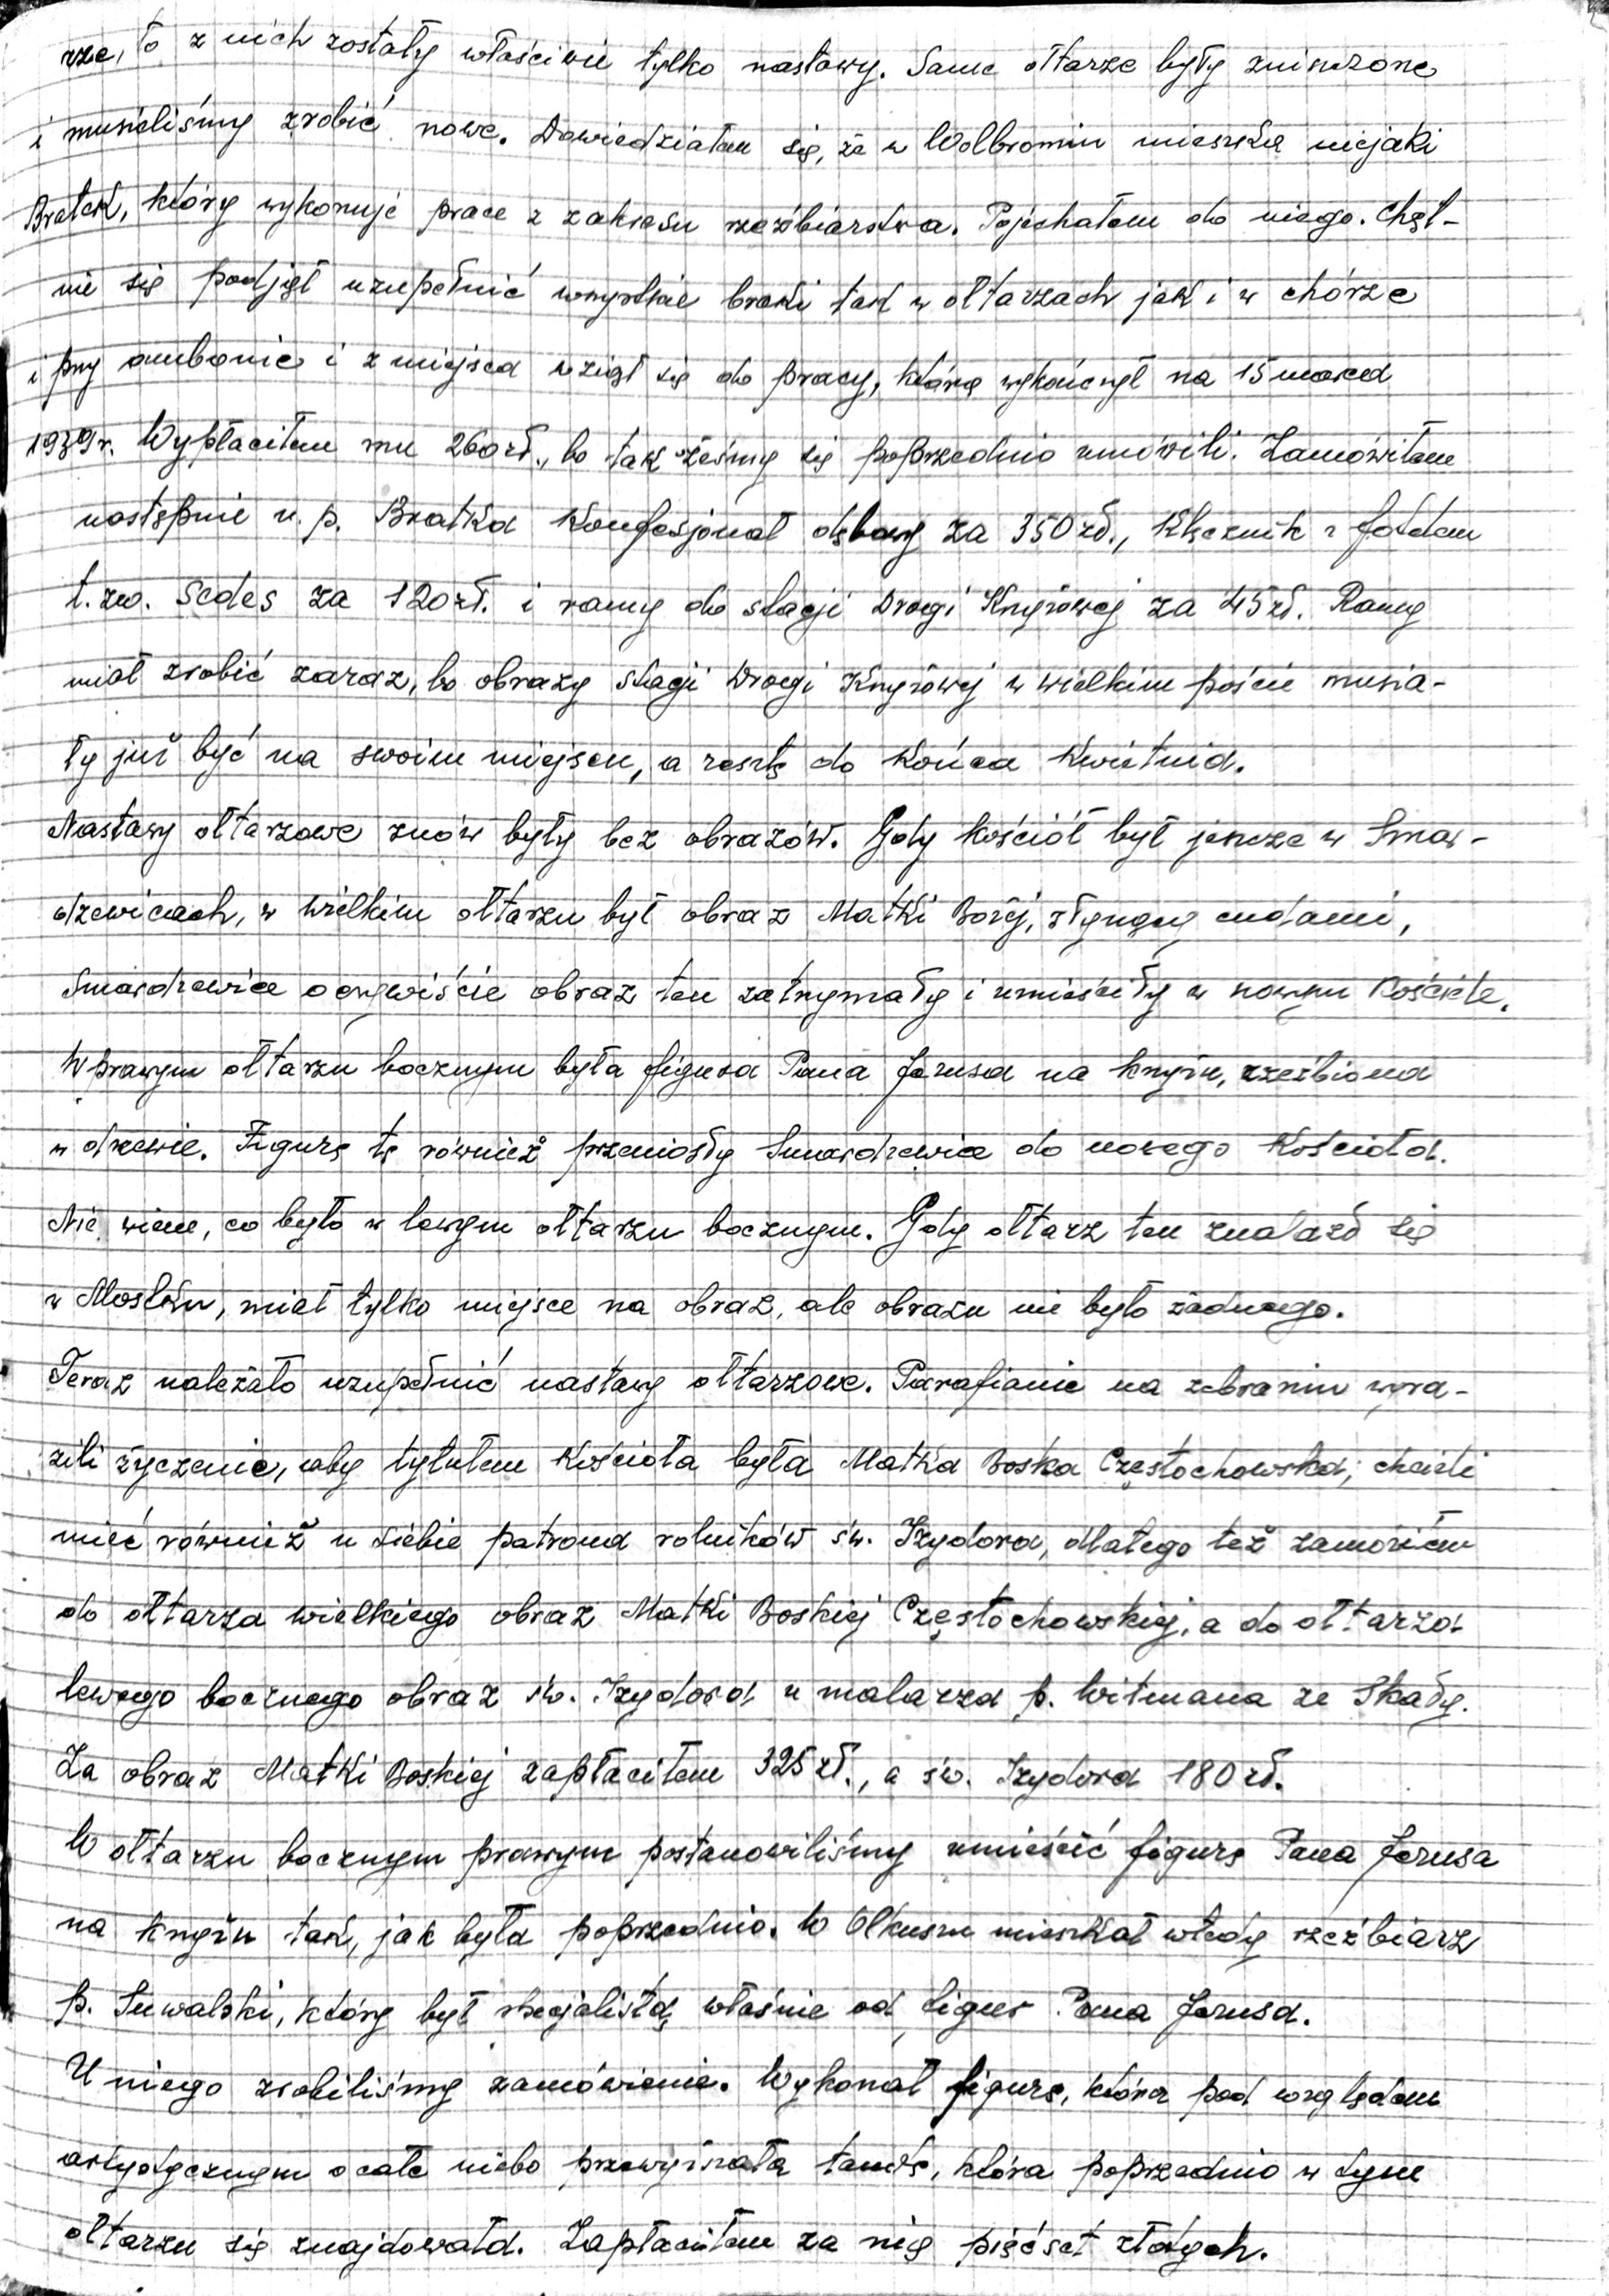 rze, to z nich zostały właściwie tylko nastawy. Same ołtarze były zniszczone
i musieliśmy zrobić nowe. Dowiedziałem się, że w Wolbromiu mieszka niejaki
Bratek, który wykonuje prace z zakresu rzeźbiarstwa. Pojechałem do niego. Chęt-
nie się podjął uzupełnić wszystkie braki tak w ołtarzach jak i w chórze
i przy ambonie i z miejsca wziął się do pracy, którą wykończył na 15 marca
1939 r. Wypłaciłem mu 260 zł., bo tak żeśmy się poprzednio umówili. Zamówiłem
następnie u p. Bratka konfesjonał dębowy za 350 zł., klęcznik z fotelem
t. zw. Sedes za 120 zł. i ramy do stacji Drogi Krzyżowej za 45 zł. Ramy
miał zrobić zaraz, bo obrazy stacji Drogi Krzyżowej w wielkim poście musia-
ły już być na swoim miejscu, a resztę do końca kwietnia.
Nastawy ołtarzowe znów były bez obrazów. Gdy kościół był jeszcze w Smar-
dzewicach, w wielkim ołtarzu był obraz Matki Bożej, słynący cudami,
Smardzewice oczywiście obraz ten zatrzymały i umieściły w nowym kościele.
W prawym ołtarzu bocznym była figura Pana Jezusa na krzyżu, rzeźbiona
w drzewie. Figurę tę również przeniosły Smardzewice do nowego kościoła.
Nie wiem, co było w lewym ołtarzu bocznym. Gdy ołtarz ten znalazł się
w Mostku, miał tylko miejsce na obraz, ale obrazu nie było żadnego.
Teraz należało uzupełnić nastawy ołtarzowe. Parafianie na zebraniu wyra-
zili życzenie, aby tytułem kościoła była Matka Boska Częstochowska; chcieli
mieć również u siebie patrona rolników św. Izydora, dlatego też zamówiłem
do ołtarza wielkiego obraz Matki Boskiej Częstochowskiej, a do ołtarza
lewego bocznego obraz św. Izydora u malarza p. Witmana ze Skały.
Za obraz Matki Boskiej zapłaciłem 325 zł., a św. Izydora 180 zł.
W ołtarzu bocznym prawym postanowiliśmy umieścić figurę Pana Jezusa
na krzyżu tak, jak była poprzednio. W Olkuszu mieszkał wtedy rzeźbiarz
p. Suwalski, który był specjalistą właśnie od figur Pana Jezusa.
U niego zrobiliśmy zamówienie. Wykonał figurę, która pod względem
artystycznym o całe niebo przewyższała tamtę, która poprzednio w tym
ołtarzu się znajdowała. Zapłaciłem za nią pięćset złotych.